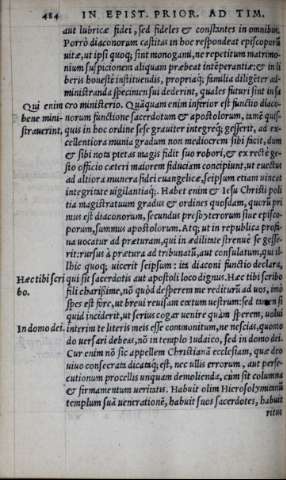 484 IN EPIST. PRIOR. AD TIM.
aut lubricæ fidei, sed fideles & constantes in omnibus.
Porrò diaconorum castitas in hoc respondeat episcoporū
uitæ, ut ipsi quoq; sint monogami, ne repetitum matrimo-
nium suspicionem aliquam præbeat intēperantiæ: & in li
beris honestè instituendis, propriaq; familia diligēter ad-
ministranda specimen sui dederint, quales futuri sint in sa
Qui enim cro ministerio. Quāquam enim inferior est functio diaco-
bene mini- norum functione sacerdotum & apostolorum, tamē quis-
strauerint, quis in hoc ordine sese grauiter integreq; gesserit, ad ex-
cellentiora munia gradum non mediocrem sibi facit, dum
& sibi nota pietas magis fidit suo robori, & ex rectè ge-
sto officio cæteri maiorem fiduciam concipiunt, ut euectus
ad altiora munera fidei euangelicæ, seipsum etiam uincat
integritate uigilantiaq;. Habet enim & Iesu Christi poli
tia magistratuum gradus & ordines quosdam, quorū pri
mus est diaconorum, secundus presbyterorum siue episco-
porum, summus apostolorum. Atq; ut in republica profa
na uocatur ad præturam, qui in ædilitate strenuè se gesse-
rit: rursus à prætura ad tribunatū, aut consulatum, qui il
lhic quoq; uicerit seipsum: ita diaconi functio declarat,
Hæc tibi scri qui sit sacerdotis aut apostoli loco dignus. Hæc tibi scribo
bo. fili charissime, nō quòd desperem me rediturū ad uos, imò
spes est fore, ut breui reuisam cœtum uestrum: sed tamen si
quid inciderit, ut serius cogar uenire quàm sperem, uolui
In domo dei. interim te literis meis esse commonitum, ne nescias, quomo
do uersari debeas, nō in templo Iudaico, sed in domo dei.
Cur enim nō sic appellem Christianā ecclesiam, quæ deo
uiuo consecrata dicataq; est, nec ullis errorum, aut perse-
cutionum procellis unquam demolienda, cùm sit columna
& firmamentum ueritatis. Habuit olim Hierosolymitanū
templum suā uenerationē, habuit suos sacerdotes, habuit
ritus